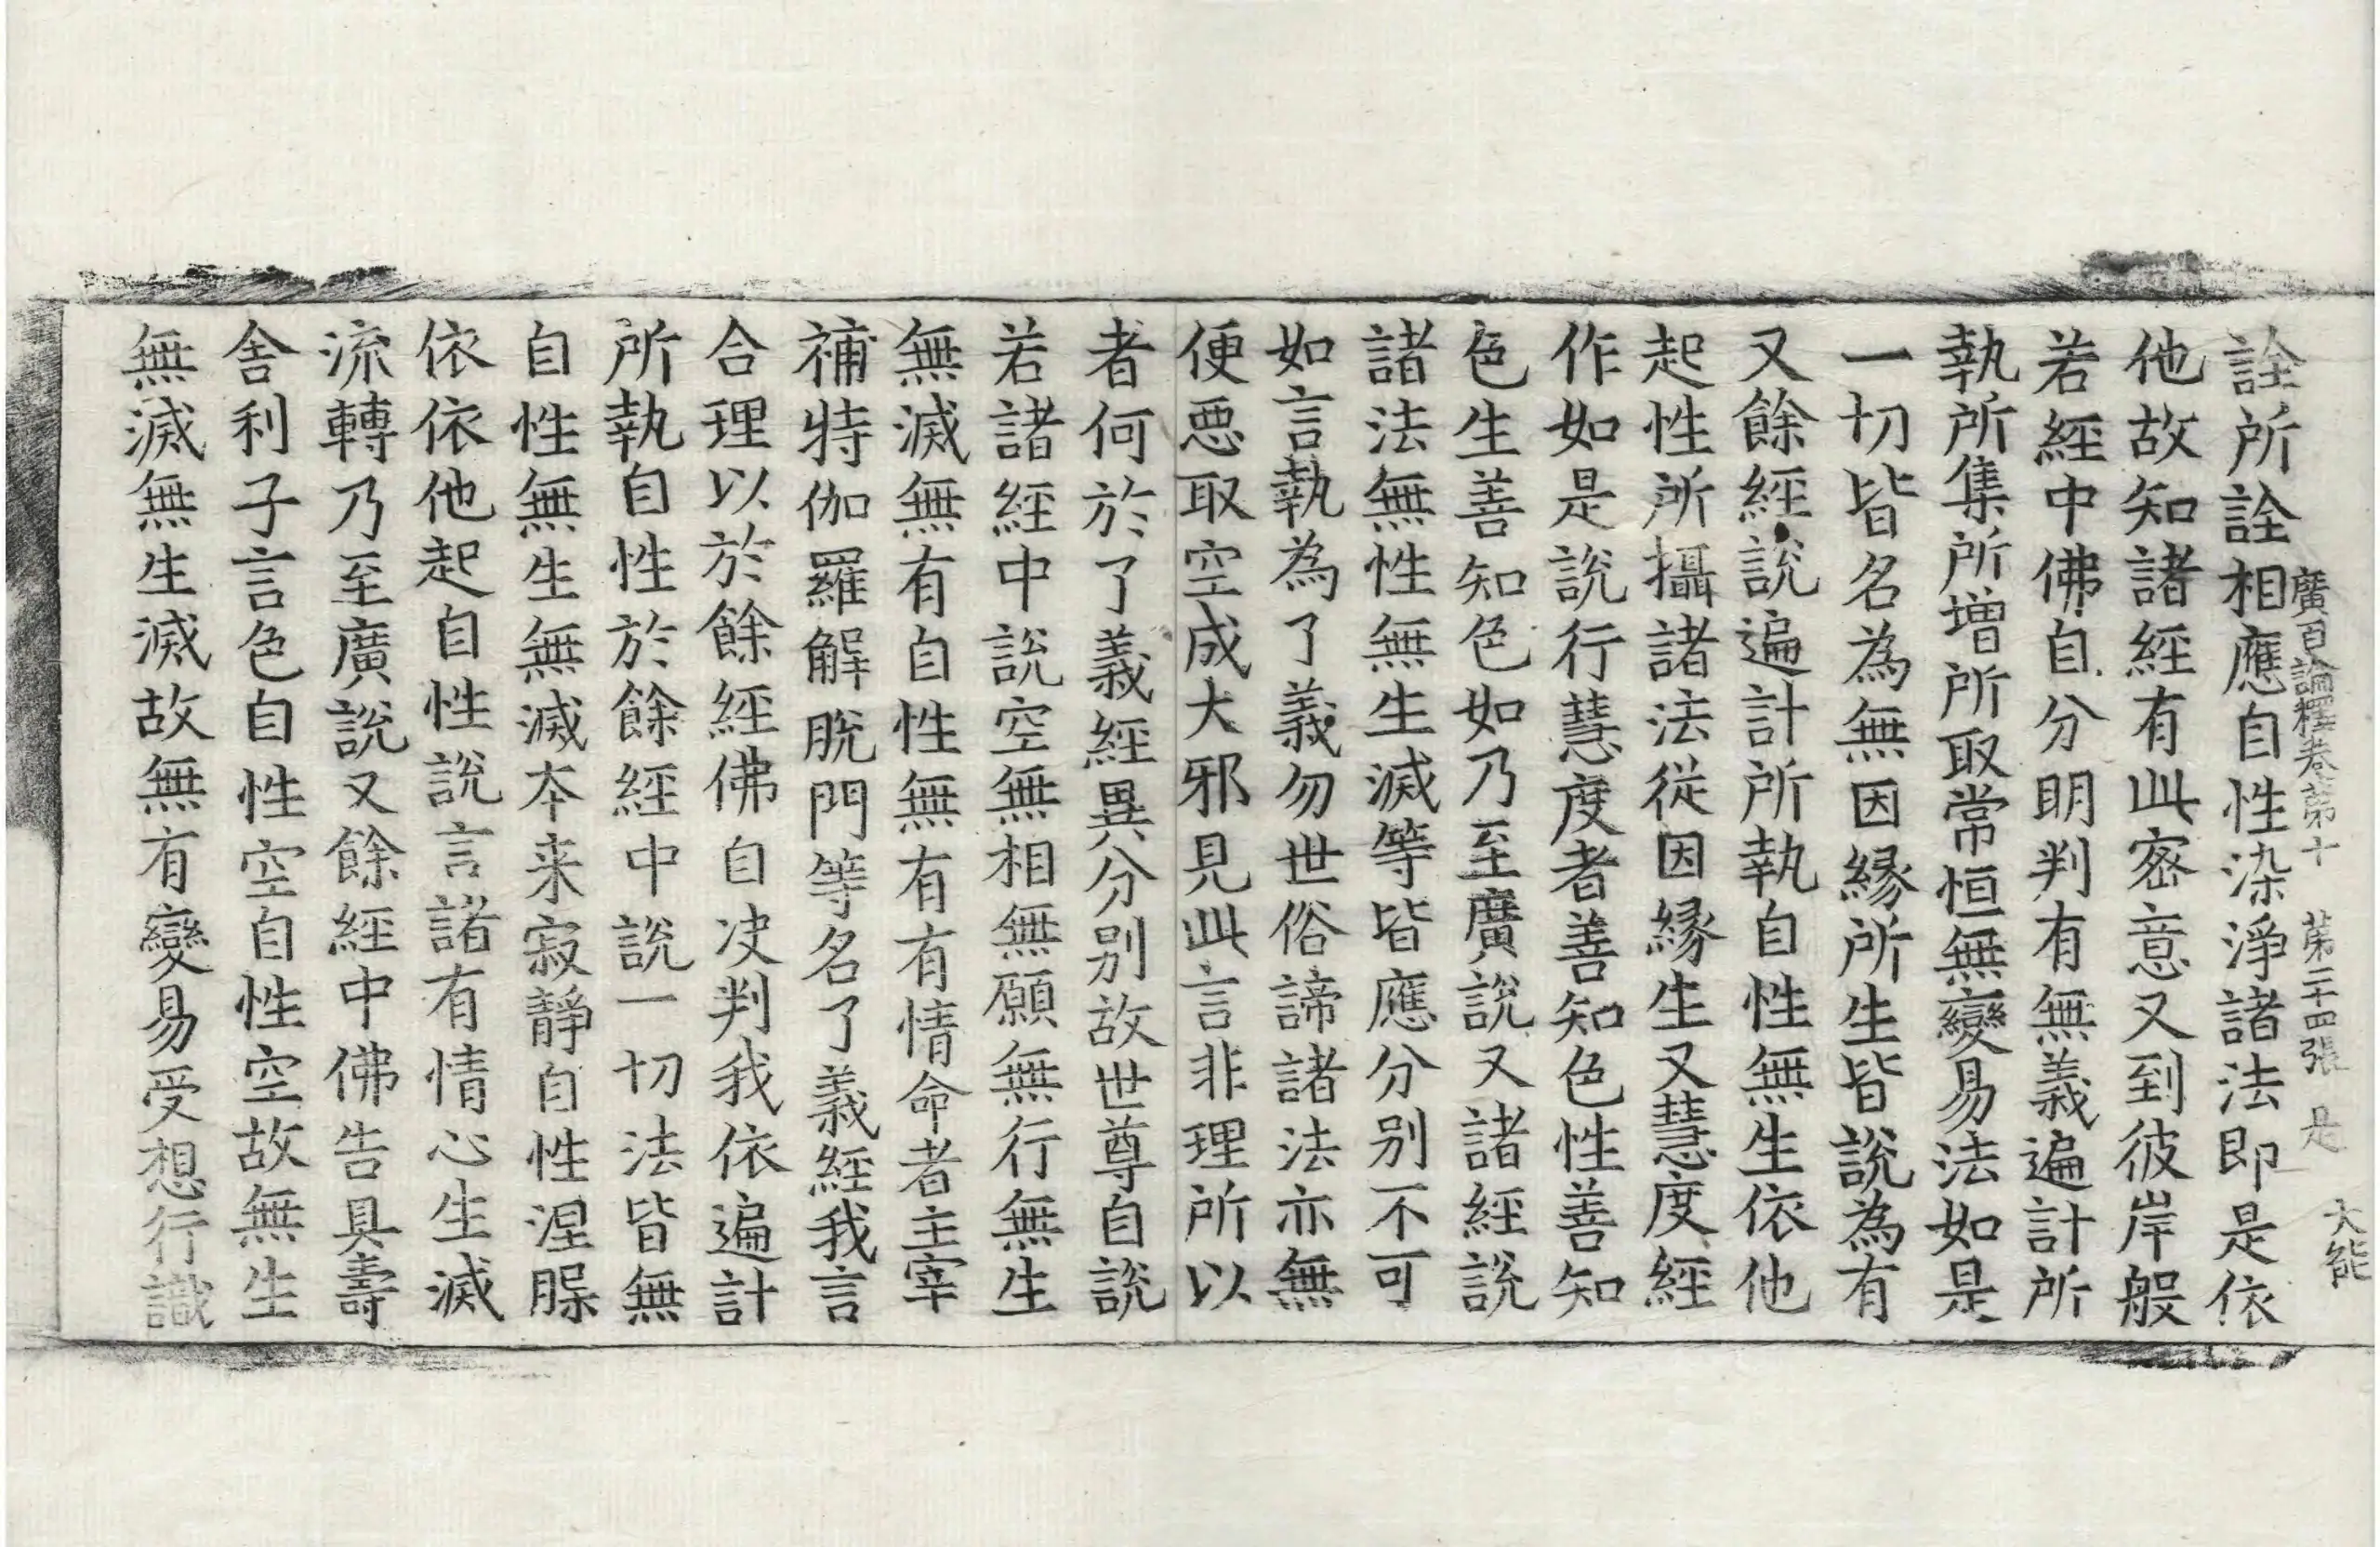 廣百論釋卷第十 第二十四張 是 大能
詮所詮相應自性染淨諸法即是依
他故知諸經有此密意又到彼岸般
若經中佛自分明判有無義遍計所
執所集所增所取常恒無變易法如是
一切皆名為無因縁所生皆說為有
又餘經說遍計所執自性無生依他
起性所攝諸法從因縁生又慧度經
作如是說行慧度者善知色性善知
色生善知色如乃至廣說又諸經說
諸法無性無生滅等皆應分别不可
如言執為了義勿世俗諦諸法亦無
便惡取空成大邪見此言非理所以
者何於了義經異分别故世尊自說
若諸經中說空無相無願無行無生
無滅無有自性無有有情命者主宰
補特伽羅解脫門等名了義經我言
合理以於餘經佛自决判我依遍計
所執自性於餘經中說一切法皆無
自性無生無滅本来寂靜自性涅槃
依依他起自性說言諸有情心生滅
流轉乃至廣說又餘經中佛告具壽
舍利子言色自性空自性空故無生
無滅無生滅故無有變易受想行識